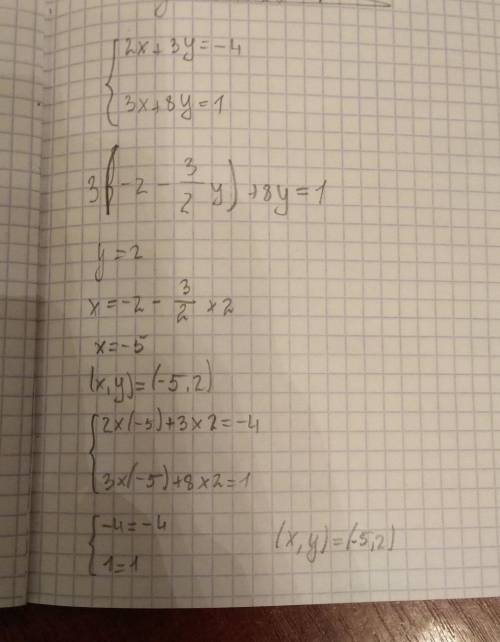 {2x+3y=-4
{3x+8y=1
3(-2 - 3/2 y)+8y=1
y=2
x=-2 - 3/2 ×2
x=-5
(x,y)=(-5,2)
{2×(-5)+3×2=-4
{3×(-5)+8×2=1
{-4=-4
{1=1
(x,y)=(-5,2)